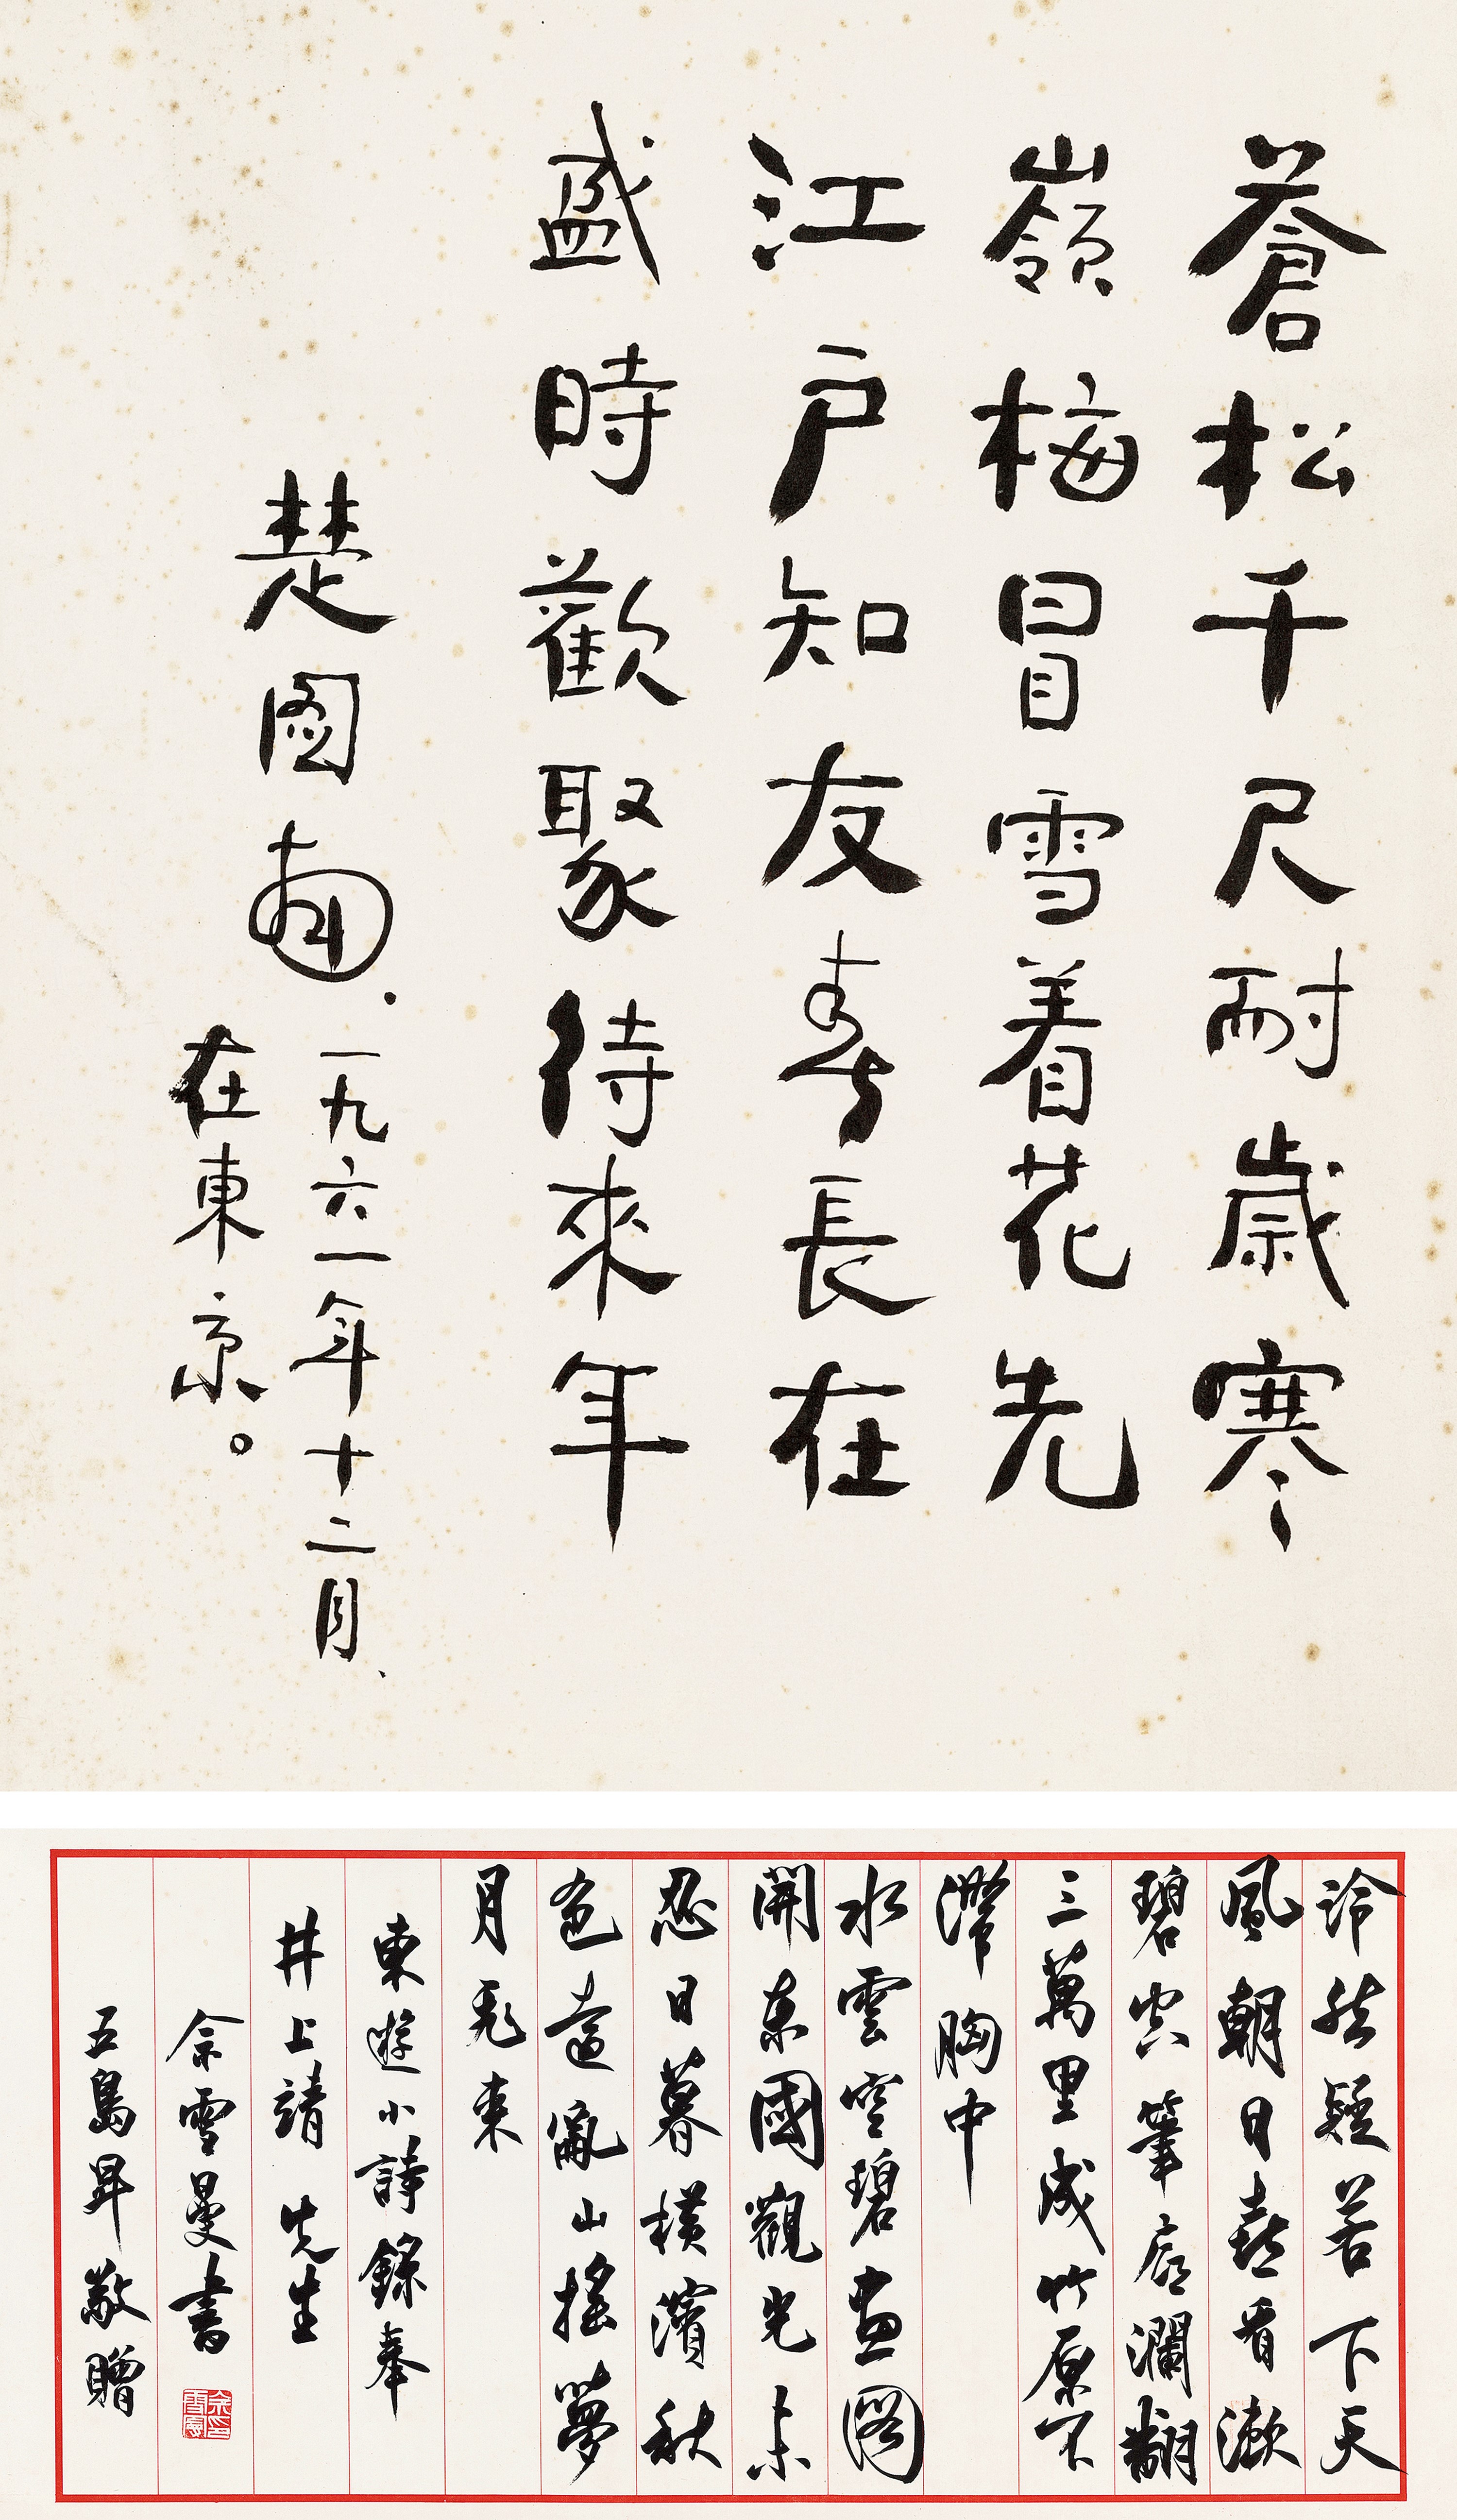 蒼松千尺耐歲寒
嶺梅冒雪着花先
江户知友壽長在
盛時歡聚待來年
楚圖南.
一九六一年十二月、
在東京。
泠然疑若下天
風朝日喜看漱
碧空筆底瀾翻
三萬里成竹原不
滯胸中
水雲空碧畫圖
開東國觀光未
忍日暮橫濱秋
色遠亂山搖夢
月飛來
東遊小詩錄奉
井上靖先生
佘雪曼書
五島昇敬贈